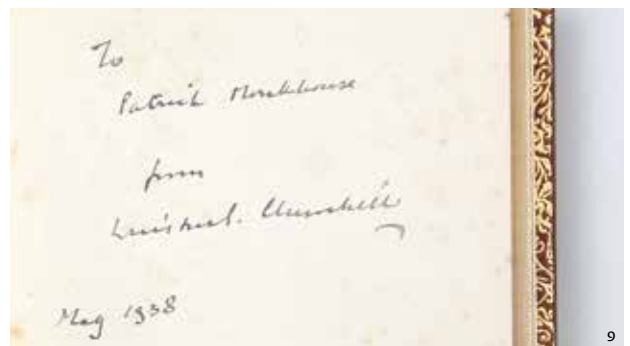 To
Patrick Monkhouse
from
Winston S. Churchill
May 1938
9